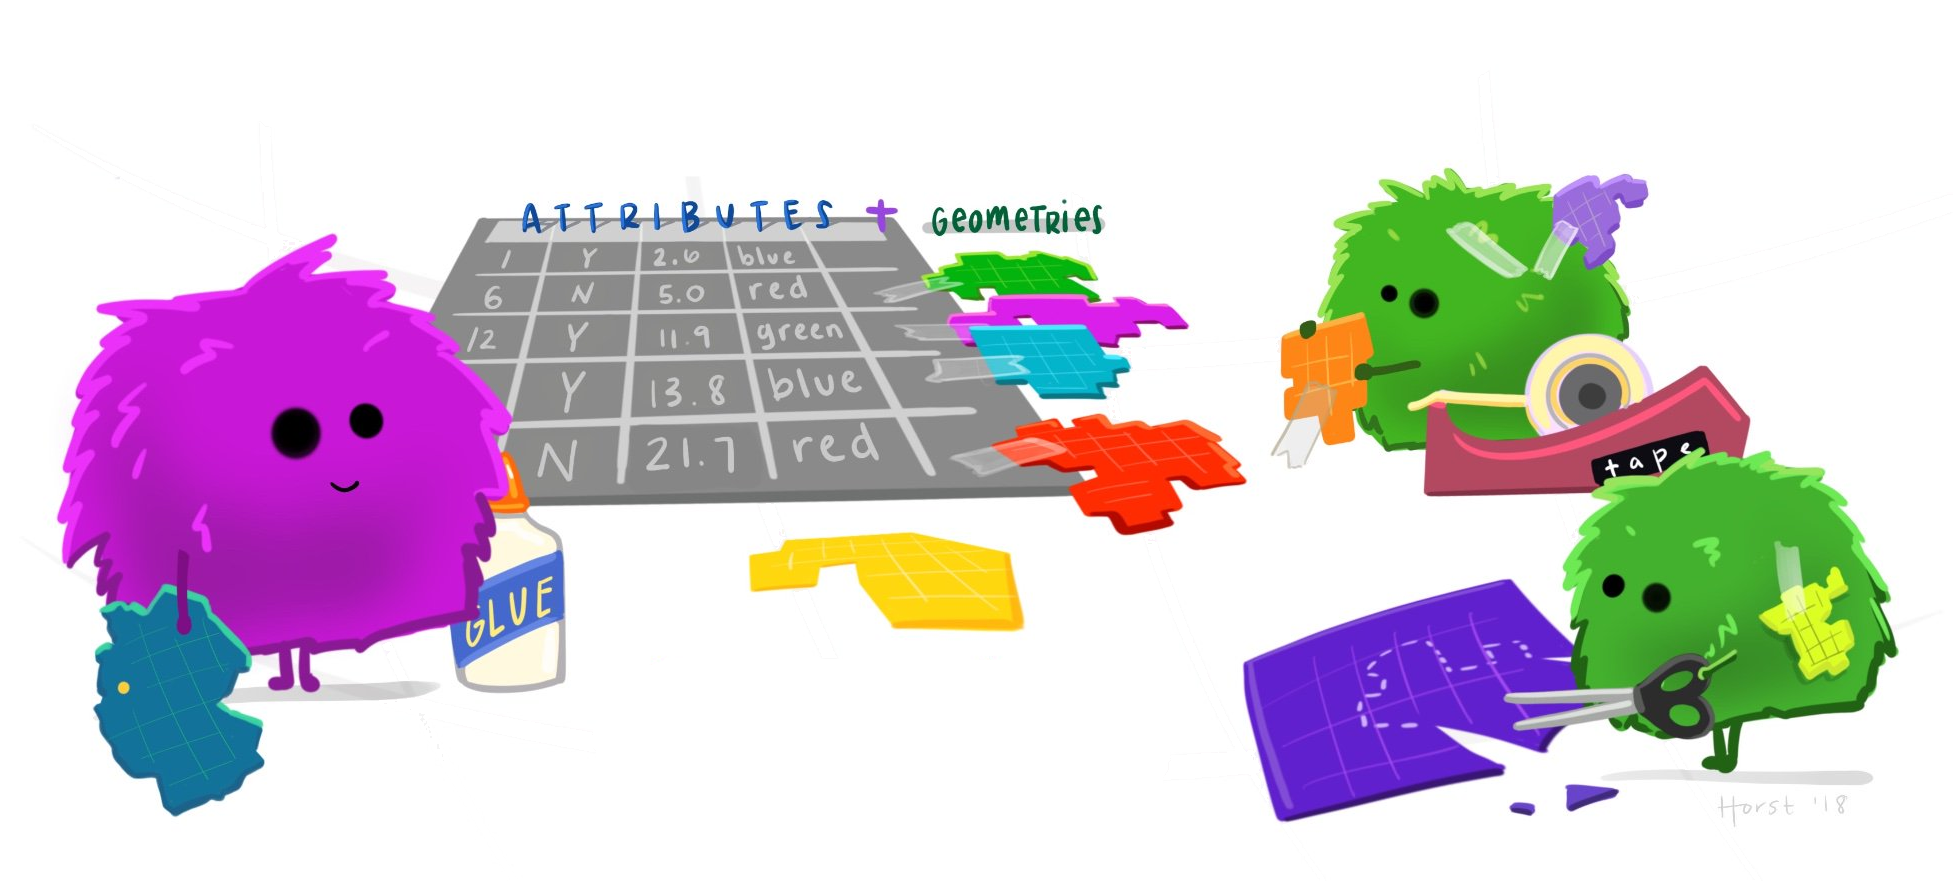 ATTRIBUTES + GEOMETRIES
1 Y 2.6 blue
6 N 5.0 red
12 Y 11.9 green
Y 13.8 blue
N 21.7 red
tape
GLUE
Horst '18